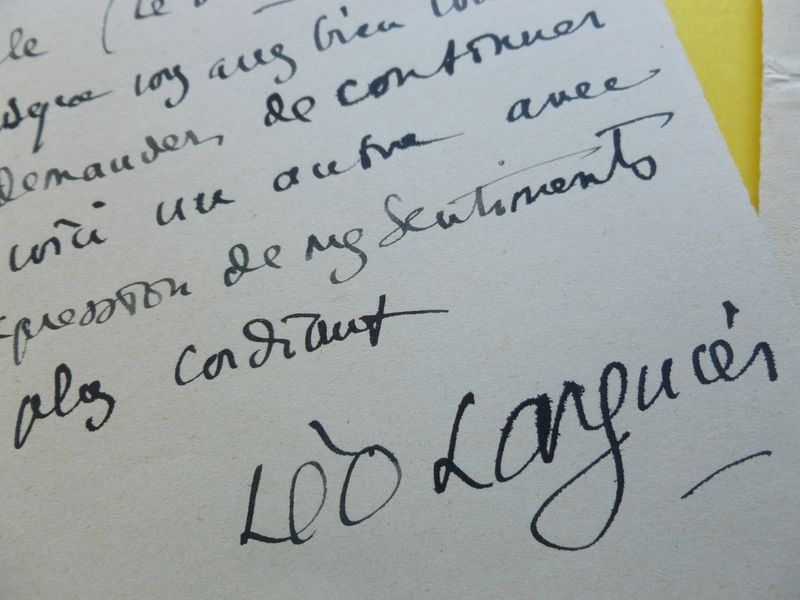 le (Le
isque vous avez bien vou
demander, de continuer
voici un autre avec
xpression de mes sentiments
plus cordiaux
Léo Larguier